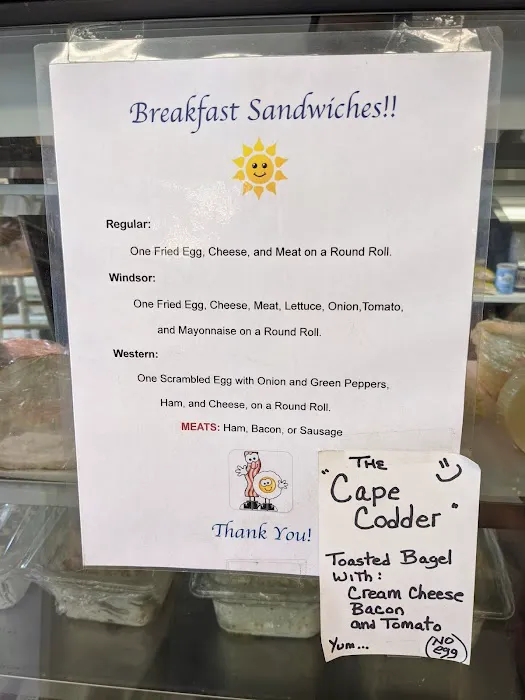 Breakfast Sandwiches!!
Regular:
One Fried Egg, Cheese, and Meat on a Round Roll.
Windsor:
One Fried Egg, Cheese, Meat, Lettuce, Onion,Tomato,
and Mayonnaise on a Round Roll.
Western:
One Scrambled Egg with Onion and Green Peppers,
Ham, and Cheese, on a Round Roll.
MEATS: Ham, Bacon, or Sausage
Thank You!
THE
"Cape
Codder"
Toasted Bagel
With:
Cream Cheese
Bacon
and Tomato
Yum...
No
egg